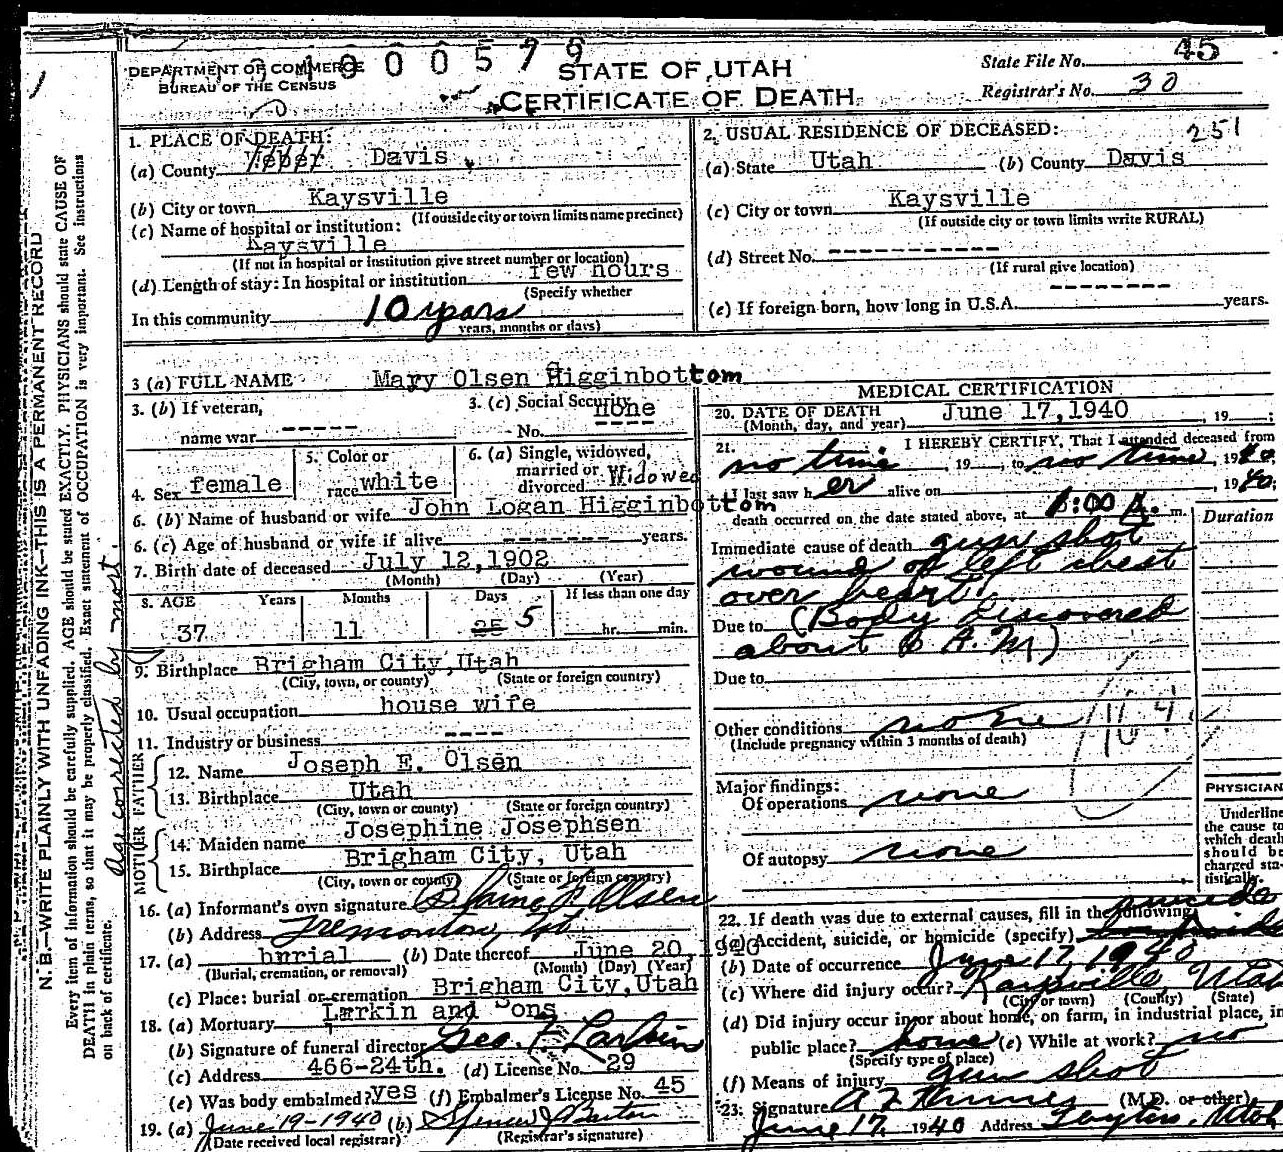 DEPARTMENT OF COMMERCE
BUREAU OF THE CENSUS
400579
STATE OF UTAH
CERTIFICATE OF DEATH
State File No. 45
Registrar's No. 30
1. PLACE OF DEATH:
(a) County Weber Davis
(b) City or town Kaysville
(If outside city or town limits name precinct)
(c) Name of hospital or institution:
Kaysville
(If not in hospital or institution give street number or location)
(d) Length of stay: In hospital or institution few hours
(Specify whether
In this community 10 years
years, months or days)
2. USUAL RESIDENCE OF DECEASED: 251
(a) State Utah (b) County Davis
(c) City or town Kaysville
(If outside city or town limits write RURAL)
(d) Street No. -----------
(If rural give location)
(e) If foreign born, how long in U.S.A. -------- years.
3 (a) FULL NAME Mary Olsen Higginbottom
3. (b) If veteran,
name war -----
3. (c) Social Security
No. none
----
4. Sex female
5. Color or
race white
6. (a) Single, widowed,
married or
divorced Widowed
6. (b) Name of husband or wife John Logan Higginbottom
6. (c) Age of husband or wife if alive ------- years.
7. Birth date of deceased July 12,1902
(Month) (Day) (Year)
8. AGE Years Months Days If less than one day
37 11 25 5 hr. min.
9. Birthplace Brigham City,Utah
(City, town, or county) (State or foreign country)
10. Usual occupation house wife
11. Industry or business ----
FATHER
12. Name Joseph E. Olsen
13. Birthplace Utah
(City, town or county) (State or foreign country)
MOTHER
14. Maiden name Josephine Josephsen
15. Birthplace Brigham City, Utah
(City, town or county) (State or foreign country)
16. (a) Informant's own signature Blaine F Olsen
(b) Address Tremonton, Ut.
17. (a) burial (b) Date thereof June 20,1940
(Burial, cremation, or removal) (Month) (Day) (Year)
(c) Place: burial or cremation Brigham City,Utah
18. (a) Mortuary Larkin and Sons
(b) Signature of funeral director Geo. F Larkin
(c) Address 466-24th. (d) License No. 29
(e) Was body embalmed? yes (f) Embalmer's License No. 45
19. (a) June 19-1940 (b) Spencer J Barton
(Date received local registrar) (Registrar's signature)
MEDICAL CERTIFICATION
20. DATE OF DEATH June 17,1940, 19 ;
(Month, day, and year)
21. I HEREBY CERTIFY, That I attended deceased from
no time, 19 , to no time, 1940.
I last saw her alive on , 1940;
death occurred on the date stated above, at 6:00 A. m.
Duration
Immediate cause of death gun shot
wound of left chest
over heart.
Due to (Body discovered
about 6 A.M)
Due to
Other conditions none
(Include pregnancy within 3 months of death)
164
Major findings:
Of operations none
Of autopsy none
PHYSICIAN
Underline
the cause to
which death
should be
charged sta-
tistically.
22. If death was due to external causes, fill in the following:
(a) Accident, suicide, or homicide (specify) suicide
(b) Date of occurrence June 17 1940
(c) Where did injury occur? Kaysville, Utah
(City or town) (County) (State)
(d) Did injury occur in or about home, on farm, in industrial place, in
public place? home (e) While at work? no
(Specify type of place)
(f) Means of injury gun shot
23. Signature (M.D. or other)
June 17, 1940 Address Layton, Utah
N. B.—WRITE PLAINLY WITH UNFADING INK—THIS IS A PERMANENT RECORD
Every item of information should be carefully supplied. AGE should be stated EXACTLY. PHYSICIANS should state CAUSE OF
DEATH in plain terms, so that it may be properly classified. Exact statement of OCCUPATION is very important. See instructions
on back of certificate.
Age corrected by mort.